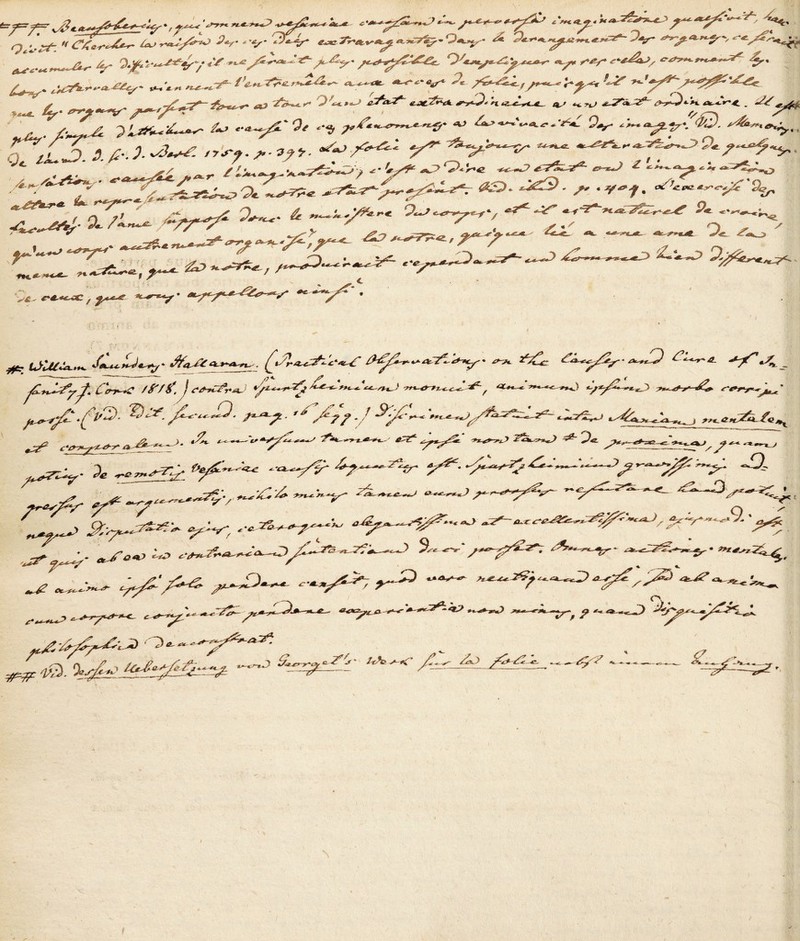 ╪ ╪ ╪. Beausoberius, qui omnem vesaniae causam in perversa imaginatione quaesivit, haec
dicit: "Chercher la raison des ces Ideés extravagantes dans le derangement des organes, ce serait
accumuler les difficultés; il ne serait plus possible d'expliquer apres cela, comment les
bons intervalles viennent s'entremêler aux acces de folie, puisqu'il n'est possible
que les organs passent tour a tour d'un état extraordinaire a un etat ordinaire. Il est
plus simple d'attribuer la cause de ces phenomenes a la vivacité des images." Vid. Memoires
de l'acad. d. sc. d. Berl. 1759. p. 397. La folie est toujours une alteration de quelques
sensations causée par l'imagination; c'est a dire un etat ou l'imagination
altere la representation de notre etat present. Vid. ibid. p. 404. L'exercise des
facultés de l'ame suppose donc le ministere du corps, et il est naturel de croire,
qu'un corps autrement organisé, que la notre, quique lié a une ame de la
meme nature, que la notre, produirait cependant un homme bien different
de ceux, que nous appellons ainsi".
#. William Saunders Hallaran. (Practical Observations on the Causes and Cure of In-
sanity. Cork 1818.) contra Spurtzheimium monuit, animum ipsum morbo corripi
posse. (Vid. Edit. secund. pag. 16 sqq.) Discrimen statuit inter Maniam mentalem
et corporalem. In universum tamen et ipsi non tam de proxima, quam
potius de remotis Vesaniae causis loquutus est. Spurtzheimium gravissimis ad-
gressus est argumentis, nihilo minus tamen eum prorsus refutare haud potuit,
neque Disputatio ejus, ceteroquin elegantissima at excellentissima, ejusmodi est,
ut quis ab ea in contrariam sententiam duci posset. Omnes actiones mentales
ab animo ipso solo pendere censet, quod vero neutiquam esse, sed ab animo
cum corpore conjuncto pendere experientia non minus, quam disquisitio
philosophica demonstrat.
## Vid. dessen Uebersetzung von Georget's Werk sur la folie nebst einem